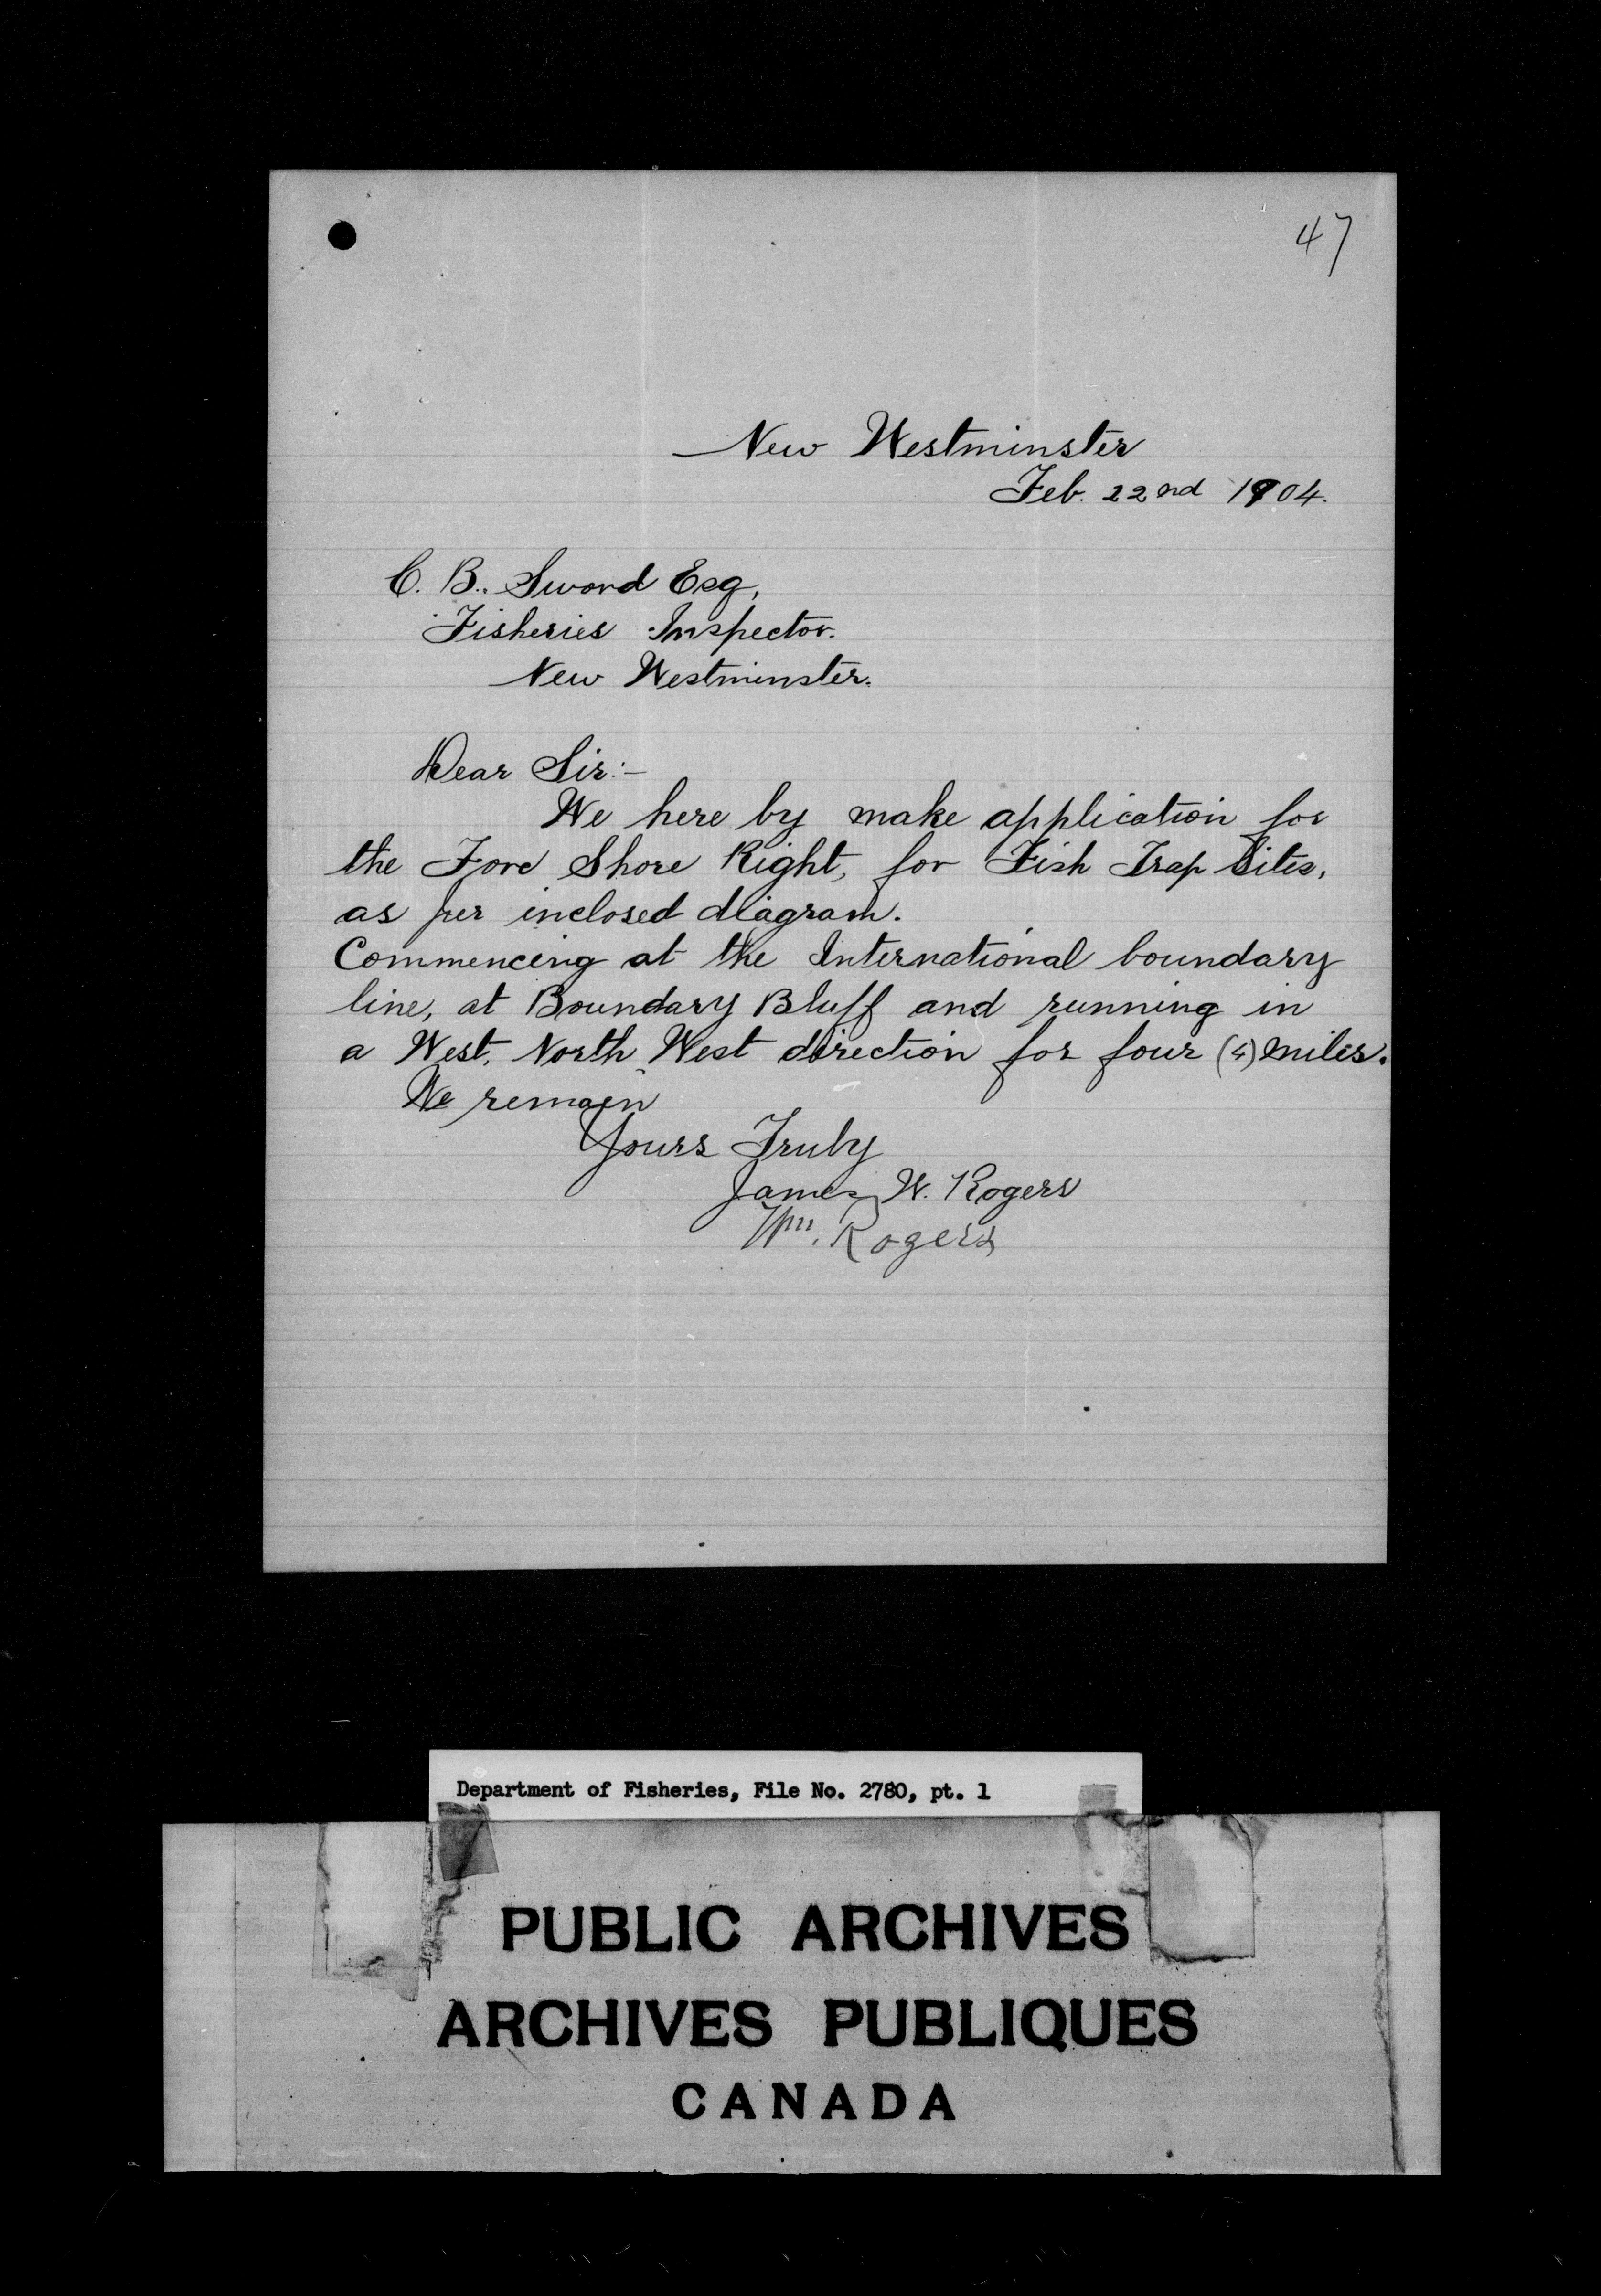 47
New Westminster
Feb. 22nd 1904.
C. B. Sword Esq,
Fisheries Inspector.
New Westminster.
Dear Sir:-
We here by make application for
the Fore Shore Right, for Fish Trap Sites,
as per inclosed diagram.
Commencing at the International boundary
line, at Boundary Bluff and running in
a West, North West direction for four (4) miles.
We remain
Yours Truly
James W. Rogers
Wm. Rogers
Department of Fisheries, File No. 2780, pt. 1
PUBLIC ARCHIVES
ARCHIVES PUBLIQUES
CANADA